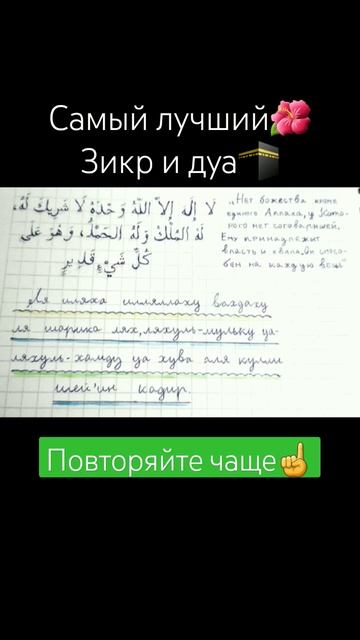 Самый лучший🌺
Зикр и дуа🕋
لَا إِلَهَ إِلاَّ اللَّهُ وَحْدَهُ لَا شَرِيكَ لَهُ،
لَهُ المُلْكُ وَلَهُ الحَمْدُ، وَهُوَ عَلَى
كُلِّ شَيْءٍ قَدِيرٍ
„Нет божества кроме
единого Аллаха, у Кото-
рого нет соговарищей.
Ему принадлежит
власть и хвала, Он спосо-
бен на каждую вещь"
Ля иляха илляллаху вахдаху
ля шарика лях, ляхуль-мульку уа-
ляхуль-хамду уа хува аля кулли
шей'ин кадир.
Повторяйте чаще☝